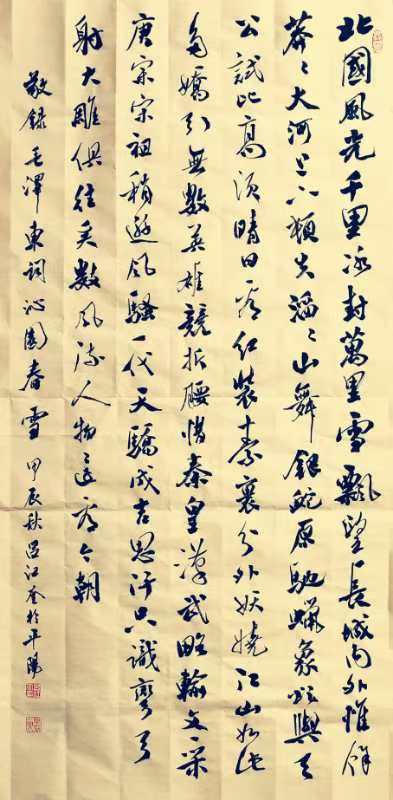 北國風光千里冰封萬里雪飄望長城内外惟餘
莽〻大河上下頓失滔〻山舞銀蛇原馳蠟象欲與天
公試比高須晴日看紅裝素裹分外妖嬈江山如此
多嬌引無數英雄競折腰惜秦皇漢武略輸文采
唐宗宋祖稍遜風騷一代天驕成吉思汗只識彎弓
射大雕俱往矣數風流人物還看今朝
敬錄毛澤東詞沁園春雪 甲辰秋呂江於平陽